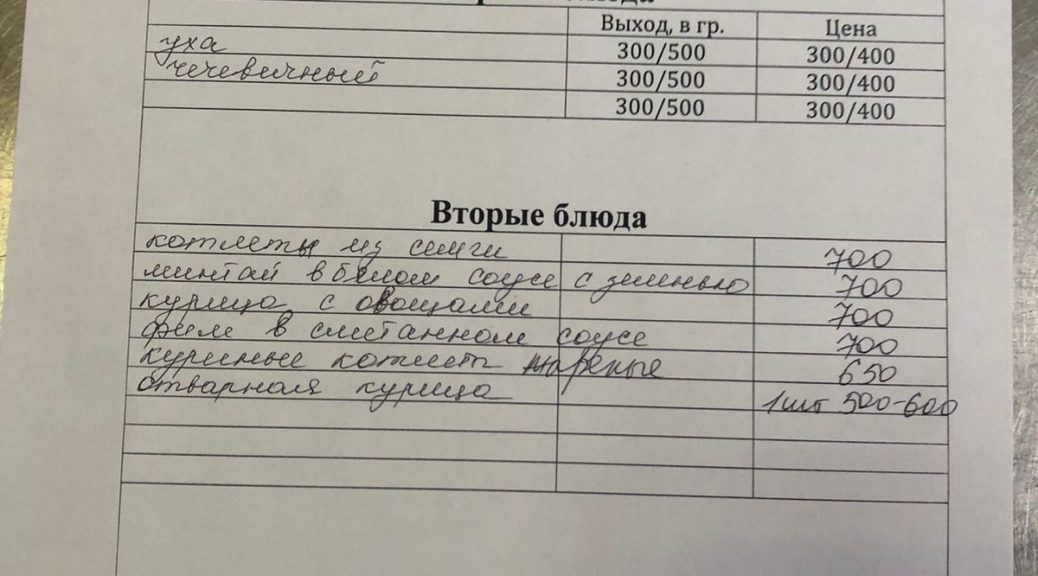 блюда
Выход, в гр. Цена
уха 300/500 300/400
чечевичный 300/500 300/400
300/500 300/400
Вторые блюда
котлеты из семги 700
минтай в белом соусе с зеленью 700
курица с овощами 700
филе в сметанном соусе 700
куриные котлет жареные 650
отварная курица 1шт 500-600